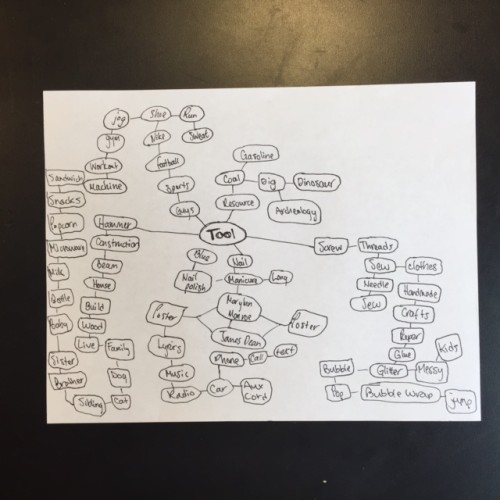 jog
Shoe
Run
gym
Nike
Sweat
Gasoline
Workout
football
Sandwich
Machine
Coal
Dig
Dinosaur
Snacks
Sports
Resource
Archeology
Popcorn
Hammer
Guys
Tool
Microwave
Construction
Screw
Threads
Blue
Nail
Milk
Beam
Sew
Clothes
Nail
polish
Manicure
Long
House
Needle
Handmade
Bottle
Build
Marylin
Monroe
Sew
Crafts
Poster
Poster
Baby
Wood
James Dean
Paper
Live
Family
Lyers
Phone
Call
text
Glue
Kids
Sister
Dog
Music
Bubble
Glitter
Messy
Brother
Radio
Car
Aux
Cord
Sibling
Cat
Pop
Bubble Wrap
jump